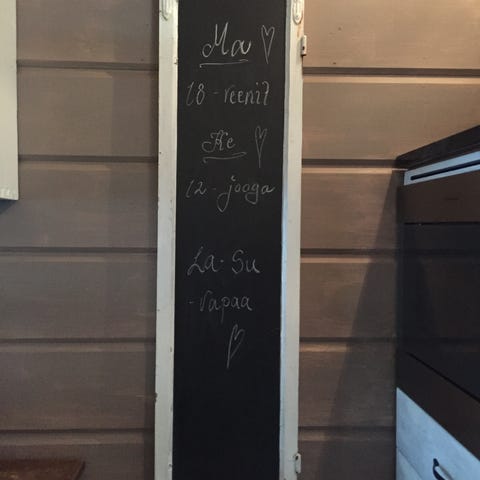 Ma ♡
18 - reenit
Ke ♡
12 - jooga
La - Su
- vapaa
♡